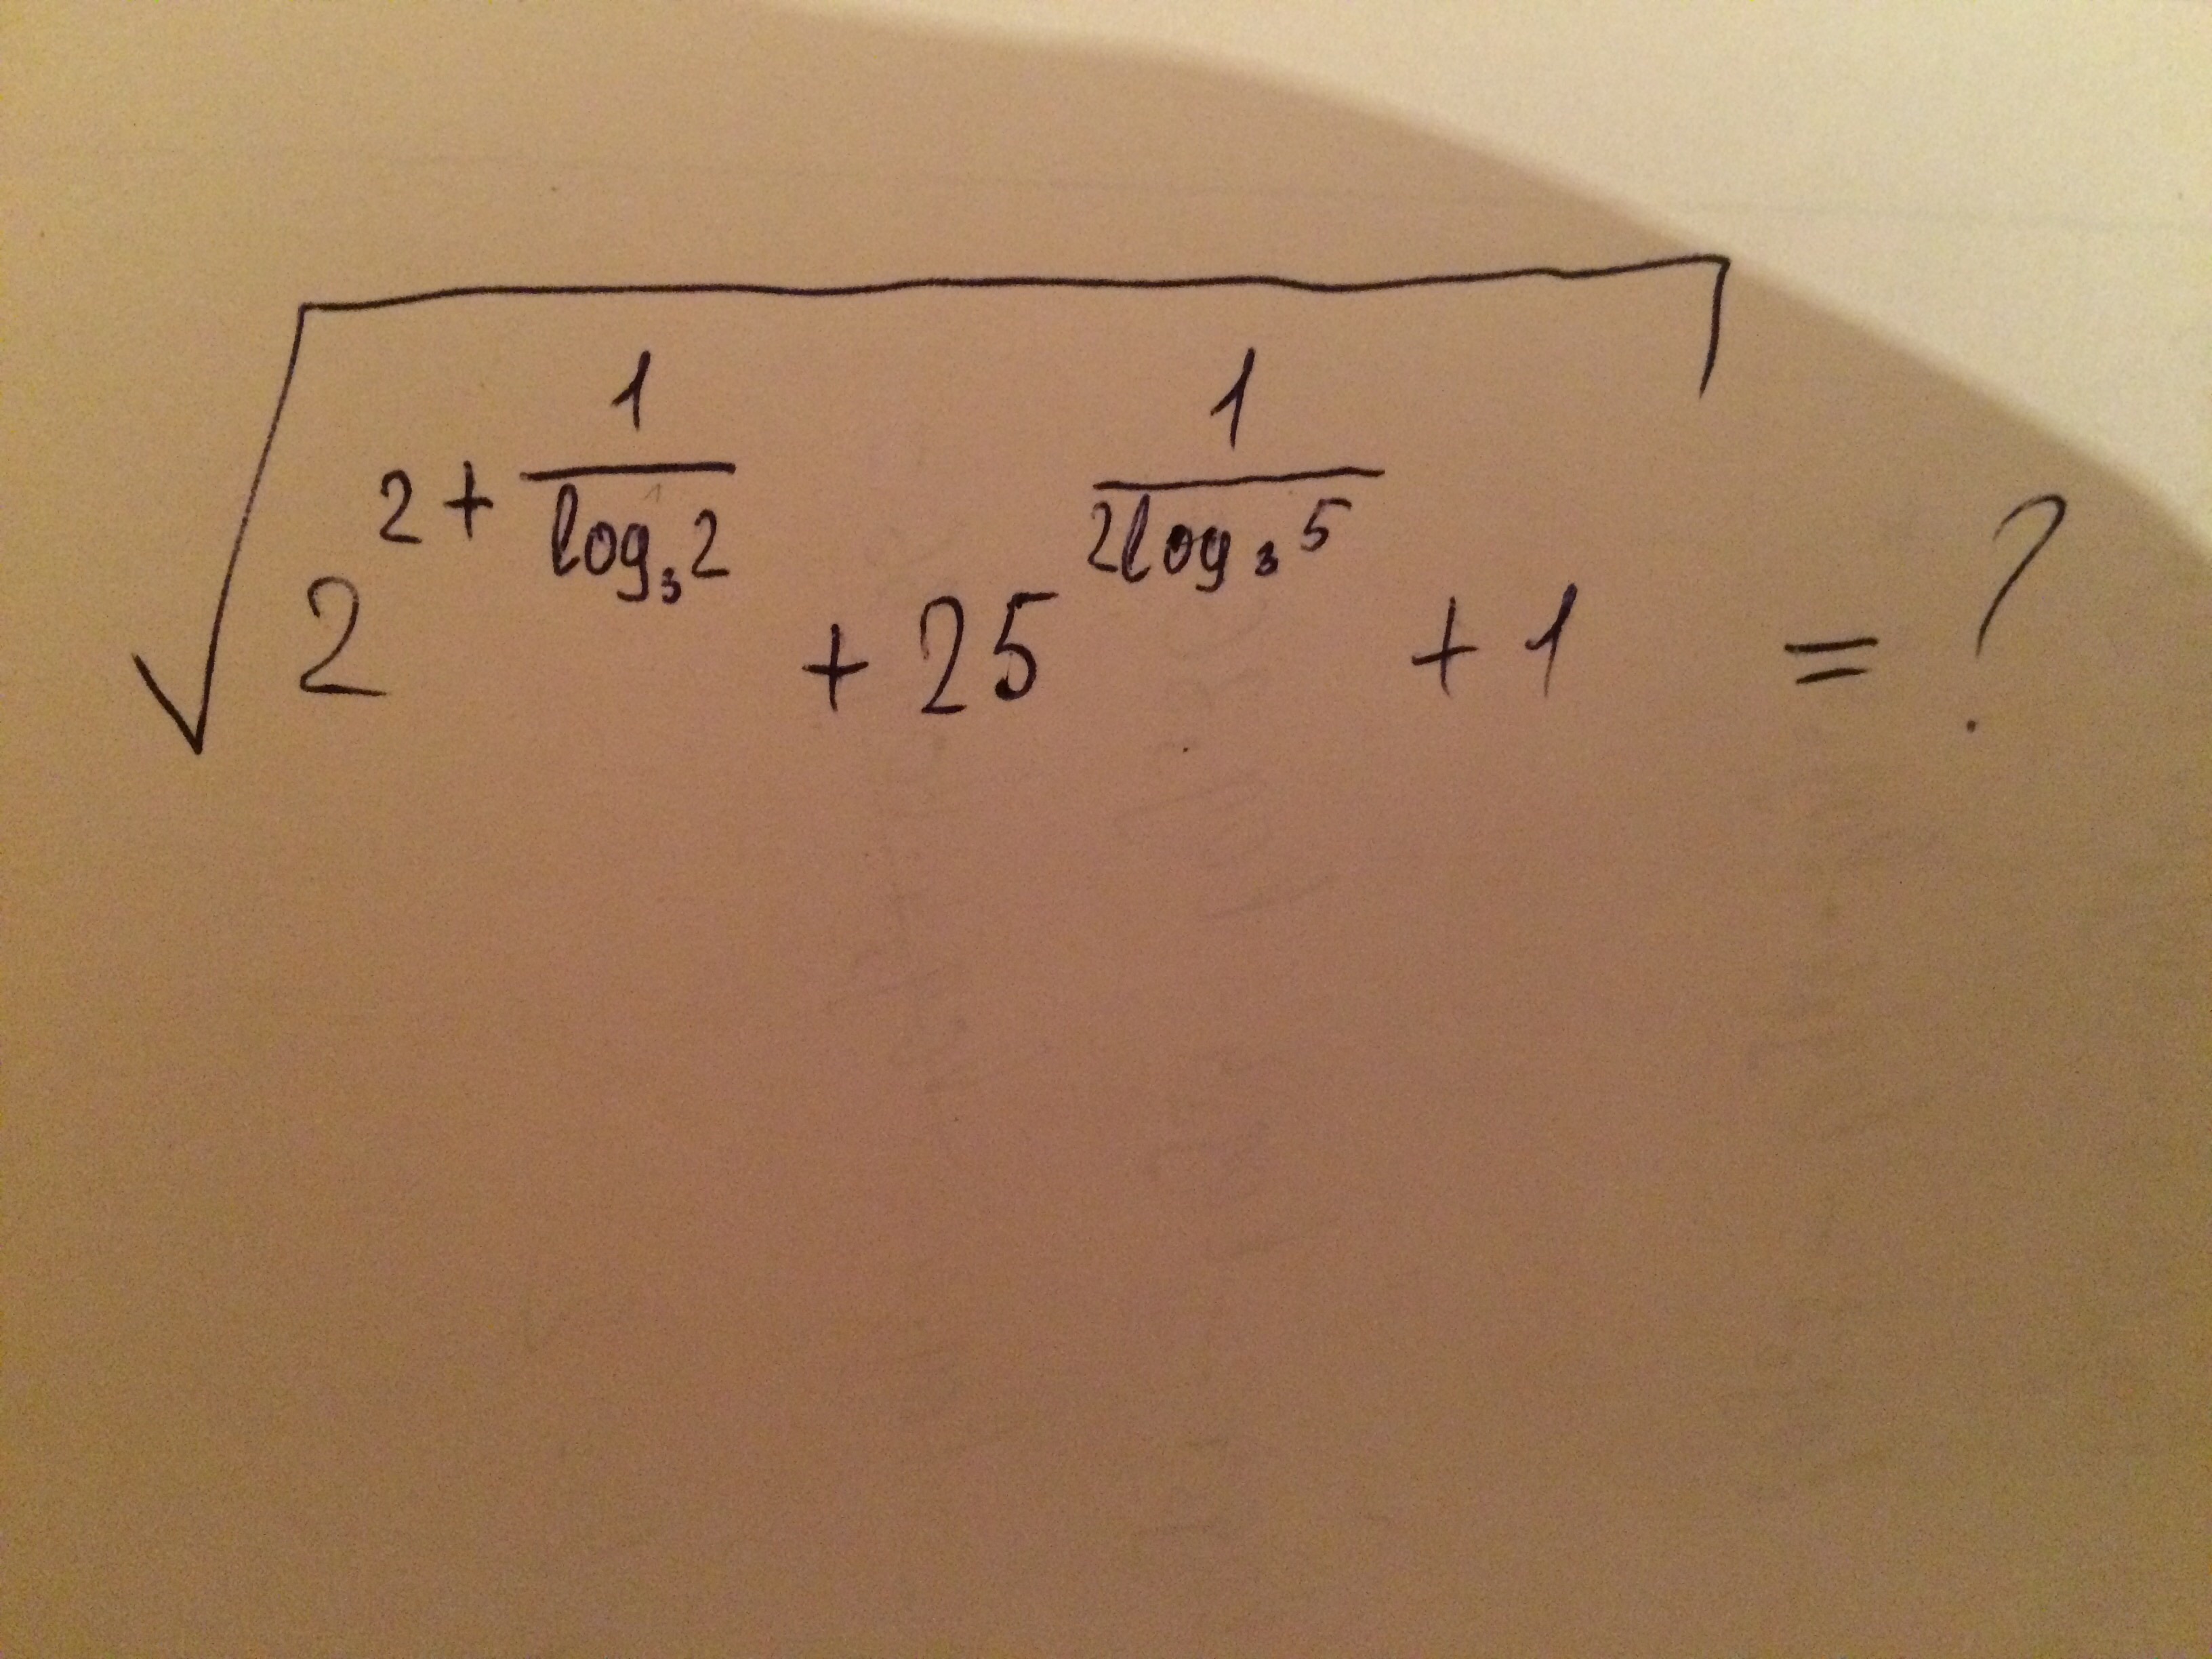 √(2^(2 + 1/(log₃2)) + 25^(1/(2log₃5)) + 1) = ?